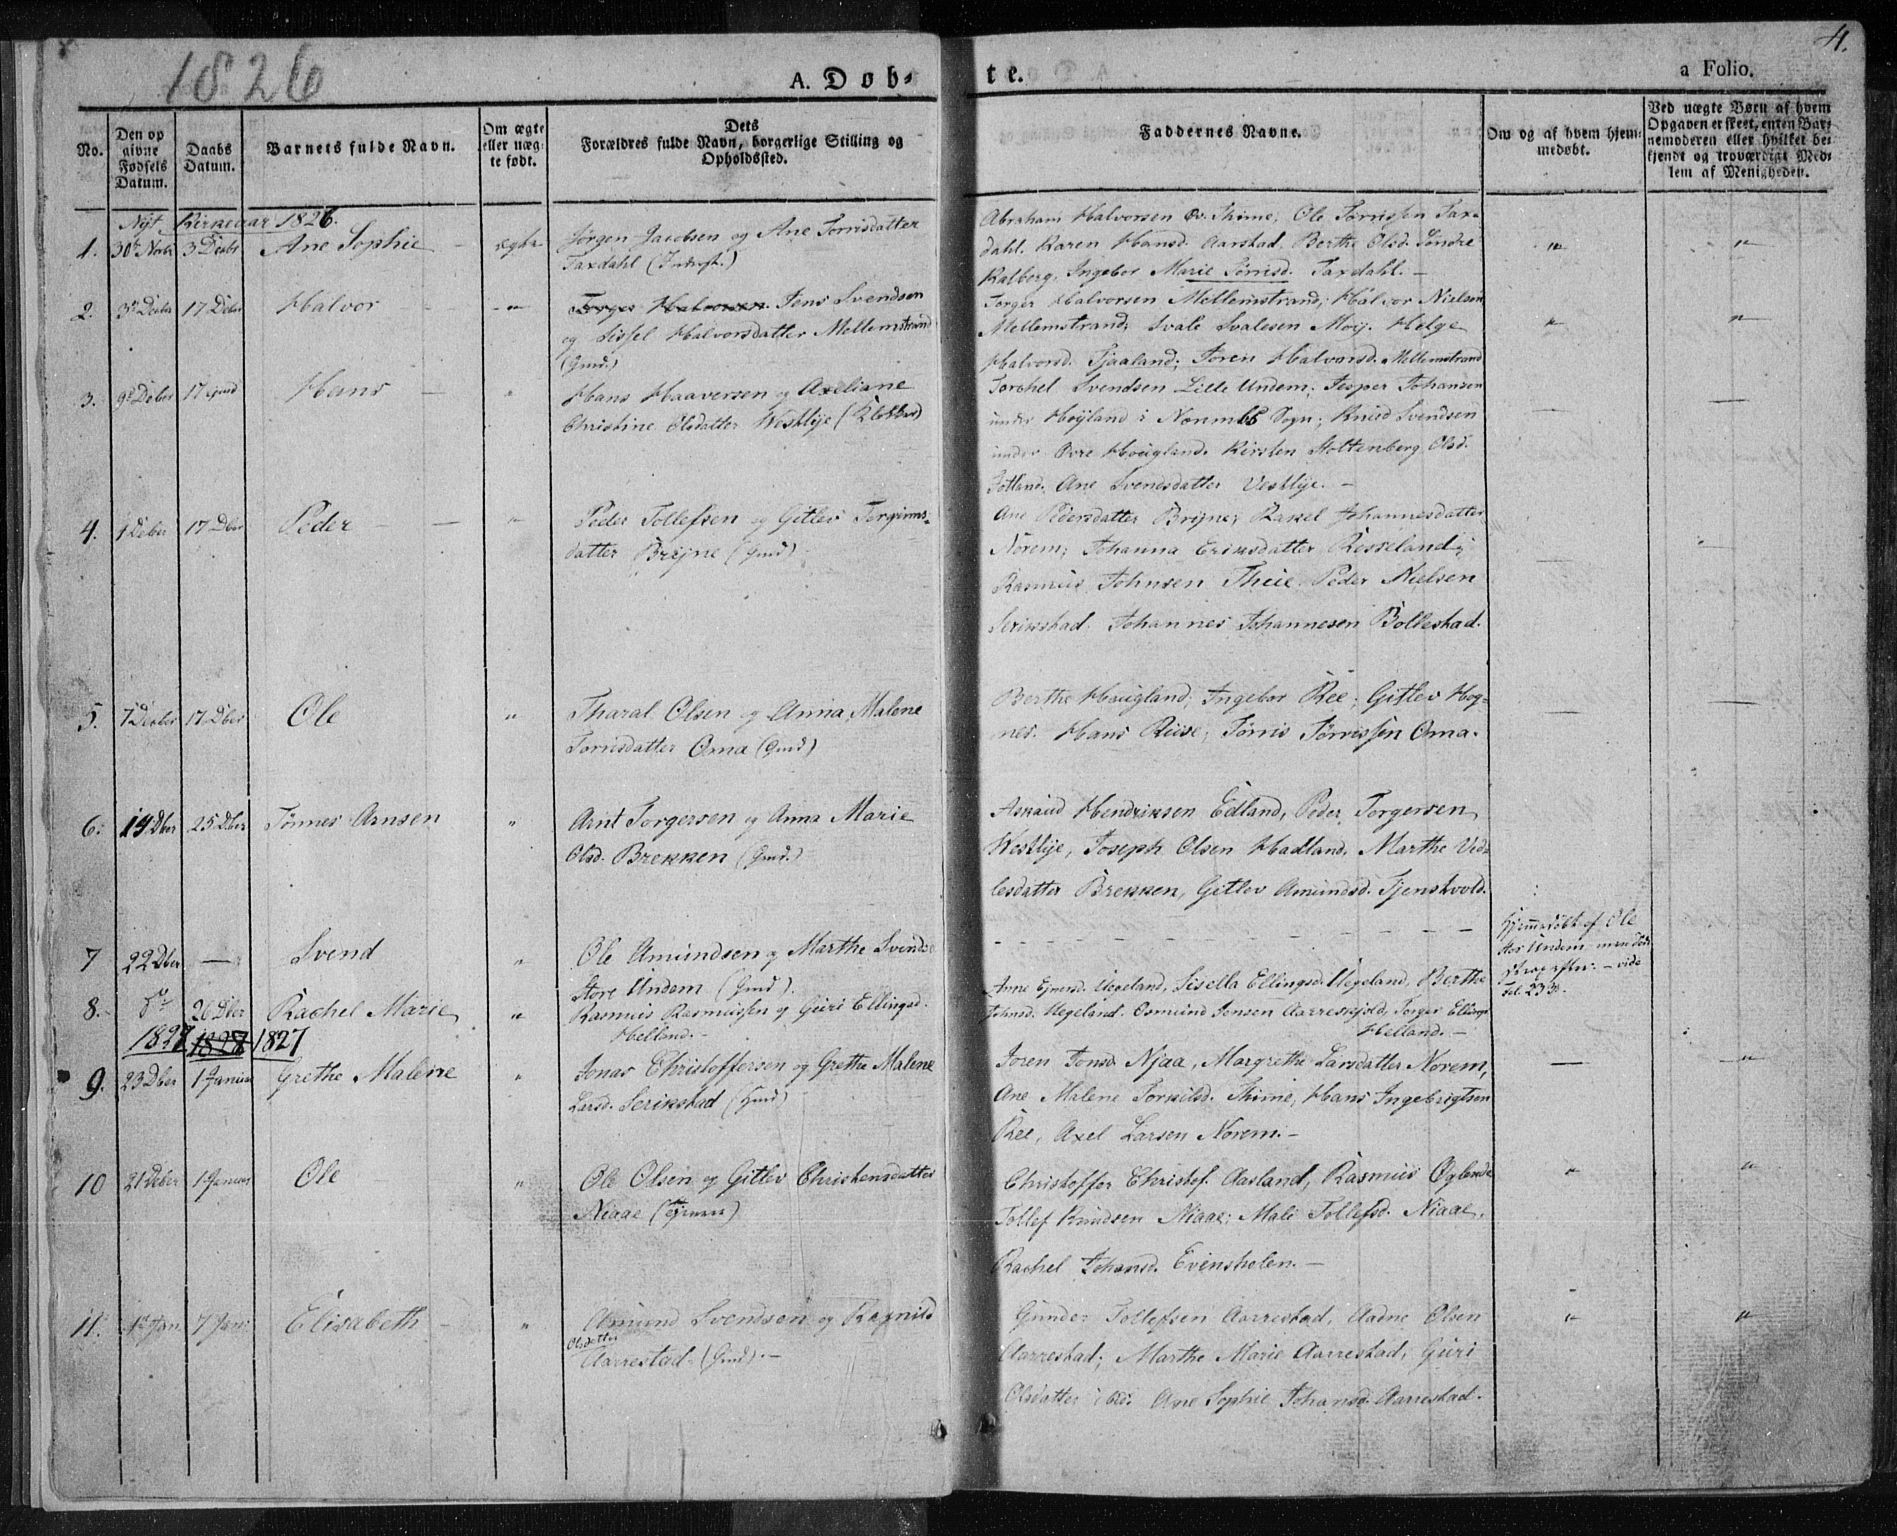 1826
4.
A. Døb-
te.
a Folio.
No.
Den op
givne
Fødsels
Datum.
Daabs
Datum.
Barnets fulde Navn.
Om ægte
eller næg-
te født.
Dets
Forældres fulde Navn, borgerlige Stilling og
Opholdssted.
Faddernes Navne.
Om og af hvem hjem-
medøbt.
Ved uægte Børn af hvem
Opgaven er skeet, enten Bar-
nemoderen eller hvilket be-
kjendt og troværdigt Med-
lem af Menigheden.
Nyt Kirkeaar 1826.
1. 30te Novbr 3 Decbr Ane Sophie - ægte
Jørgen Jacobsen og Ane Torrisdatter
Taxdahl
Abraham Halvorsen Ov. Thime; Ole Tørrissen Tax-
dahl. Karen Hansd. Aarstad, Berthe Olsd. Søndre
Kalberg, Ingebor Marie Tørrisd. Taxdahl. -
2. 3die Decbr 17 Deber Halvor - "
Torger Halvorsen Jens Svendsen
og Sissel Halvorsdatter Mellemstrand
(Gmd.)
Torger Halvorsen Mellemstrand; Halvor Nielsen
Mellemstrand; Svale Svalesen Moij. Helge
Halvorsd. Tjaaland; Joren Halvorsd. Mellemstrand
3. 9de Deber 17 ejusd Hans - "
Hans Haaversen og Axeliane
Christine Olsdatter Westlije (Klokker)
Torchel Svendsen Lille Undem; Jesper Johansen
under Høÿland i Sogn; Knud Svendsen
under Øvre Houglands Kirsten Stoltenberg Olsd.
Ane Svendsdatter Vestlije. -
4. 1 Deber 17 Dber Peder - "
Peder Tollefsen og Gitlev Torgims-
datter Brijne (Gmd)
Ane Pedersdatter Brijne; Rakel Johannesdatter
Norem; Johanna Eriksdatter Rosseland;
Rasmus Johnsen Thue Peder Nielsen
Serikstad. Johannes Johannesen Bollestad.
5. 7 Decber 17 Dber Ole "
Tharal Olsen og Anna Malene
Torrisdatter Oma (Gmd)
Berthe Hougland; Ingebor Ree; Gitlev Hog-
nes. Hans Riise; Tørris Tørrissen Oma.
6. 14 Dber 25 Dber Tønnes Arnsen "
Arnt Torgersen og Anna Marie
Olsd. Brekken (Gmd.)
Hendriksen Edland, Peder Torgersen
Westlije, Joseph Olsen Hadland. Marthe Ved-
lesdatter Brekken, Gitlev Amundsd. Tjenstvold.
7 22 Dber — Svend "
Ole Amundsen og Marthe Svends.
Store Undem (Gmd).
Hjemmedøbt af Ole
Stor Undem men døde
strax efter. - vide
Fol. 233.
8. do 26 Dber Rachel Marie "
Rasmus Rasmussen og Guri Ellingsd.
Helland. -
Anne Ejersd. Uegeland, Sisella Ellingsd. Uegeland, Berthe
Johnsd. Uegeland. Osmund Jonsen Aarreskjold, Torger Ellings
Helland. -
1827 1828 1827
9. 23 Dber 1 Januar Grethe Malene "
Jonas Christoffersen og Grethe Malene
Larsd. Serikstad (Gmd)
Joren Jonsd Njaa, Margrethe Larsdatter Norem,
Ane Malene Torkilsd. Thime, Hans Ingebrigtsen
Ree, Axel Larsen Norem. -
10 21 Deber 1 Januar Ole "
Ole Olsen og Gitlev Christensdatter
Niaae
Christoffer Christof. Aasland, Rasmus Øglende
Tollef Knudsen Niaae; Mali Tollefsd. Niaae.
Rachel Johansd. Evensholen. -
11. 1te Jan. 7 Jan: Elisabeth - "
Amund Svendsen og Ragnild
Olsdatter
Aarrestad. (Gmd). -
Gunder Tollefsen Aarrestad, Aadne Olsen
Aarrestad; Marthe Marie Aarrestad, Guri
Olsdatter ibid. Ane Sophie Johansd. Aarrestad.